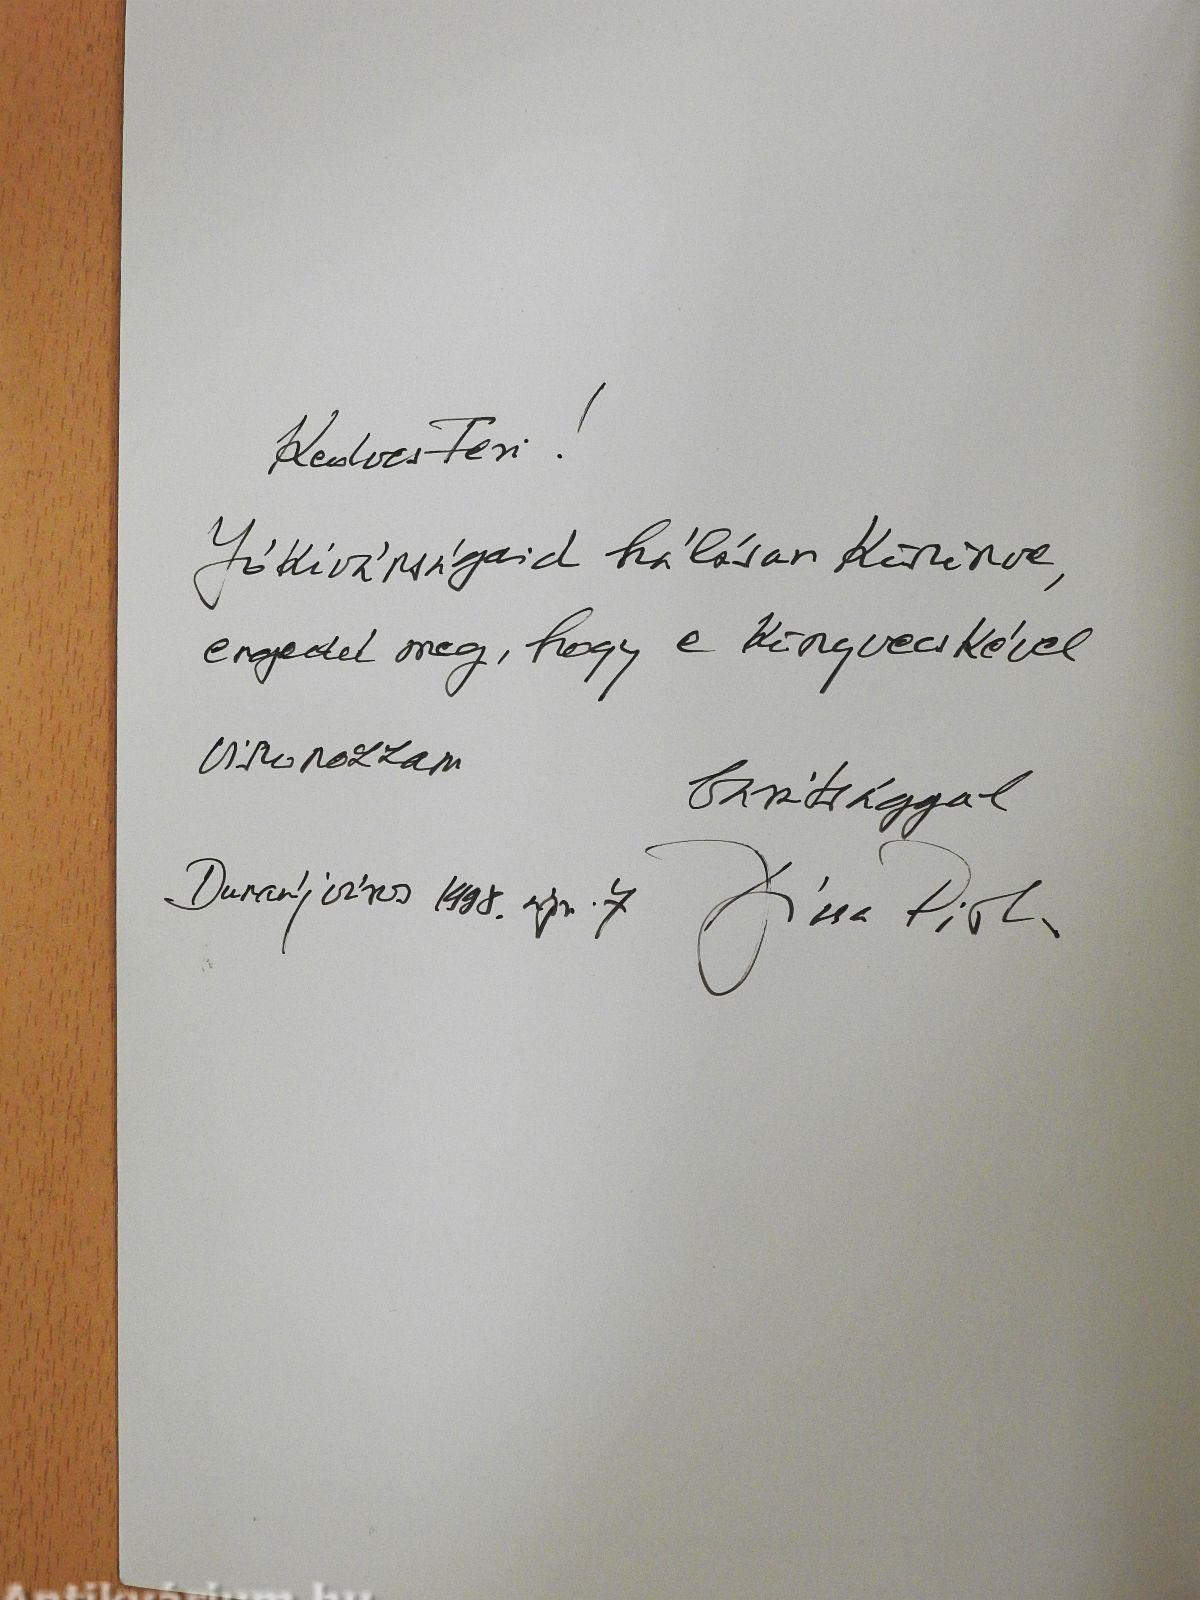 Kedves Feri!
Jókívánságaid hálásan köszönve,
engedd meg, hogy e könyvecskével
viszonozzam
barátsággal
Dunaújváros 1998. ápr. 7
Antikvárium.hu